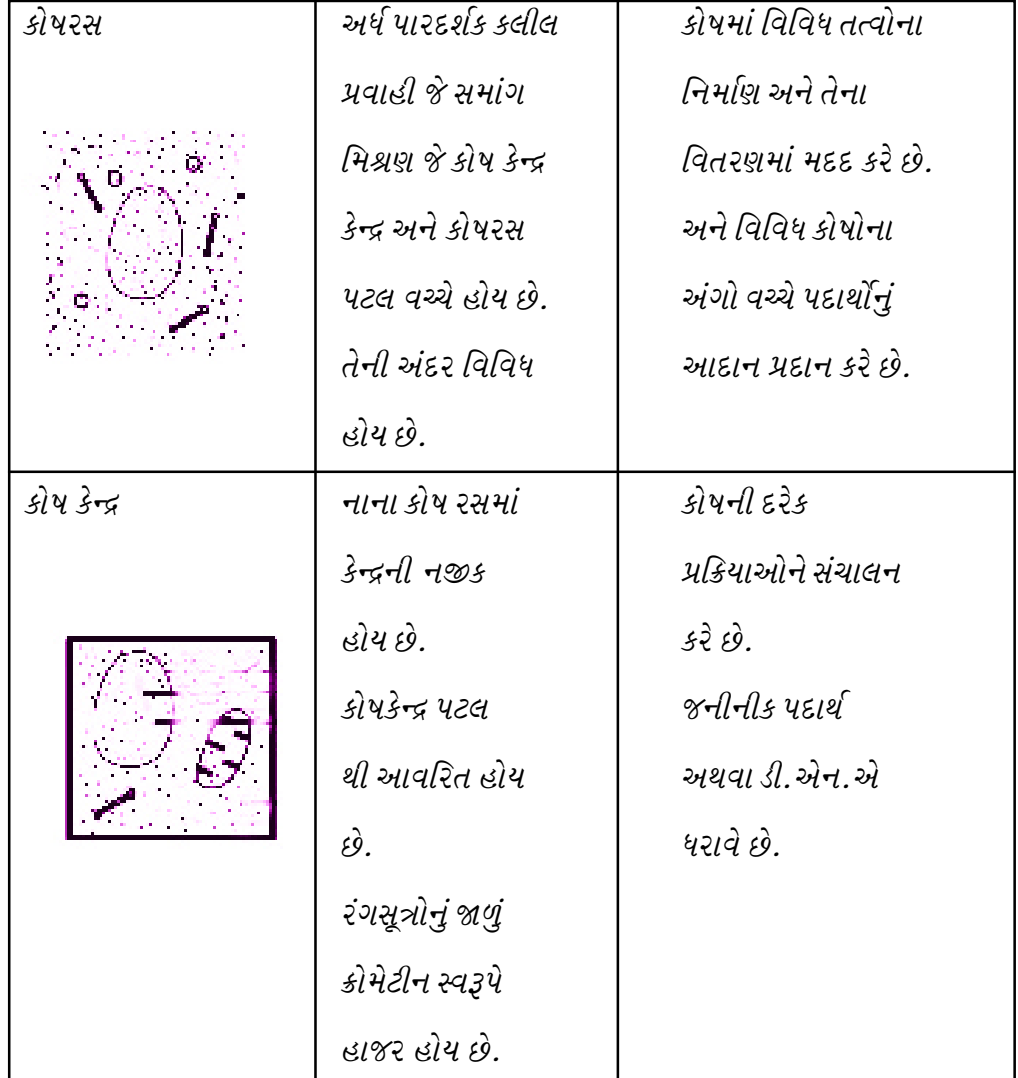 કોષરસ
અર્ધ પારદર્શક કલીલ
પ્રવાહી જે સમાંગ
મિશ્રણ જે કોષ કેન્દ્ર
કેન્દ્ર અને કોષરસ
પટલ વચ્ચે હોય છે.
તેની અંદર વિવિધ
હોય છે.
કોષમાં વિવિધ તત્વોના
નિર્માણ અને તેના
વિતરણમાં મદદ કરે છે.
અને વિવિધ કોષોના
અંગો વચ્ચે પદાર્થોનું
આદાન પ્રદાન કરે છે.
કોષ કેન્દ્ર
નાના કોષ રસમાં
કેન્દ્રની નજીક
હોય છે.
કોષકેન્દ્ર પટલ
થી આવરિત હોય
છે.
રંગસૂત્રોનું જાળું
ક્રોમેટીન સ્વરૂપે
હાજર હોય છે.
કોષની દરેક
પ્રક્રિયાઓને સંચાલન
કરે છે.
જનીનીક પદાર્થ
અથવા ડી.એન.એ
ધરાવે છે.